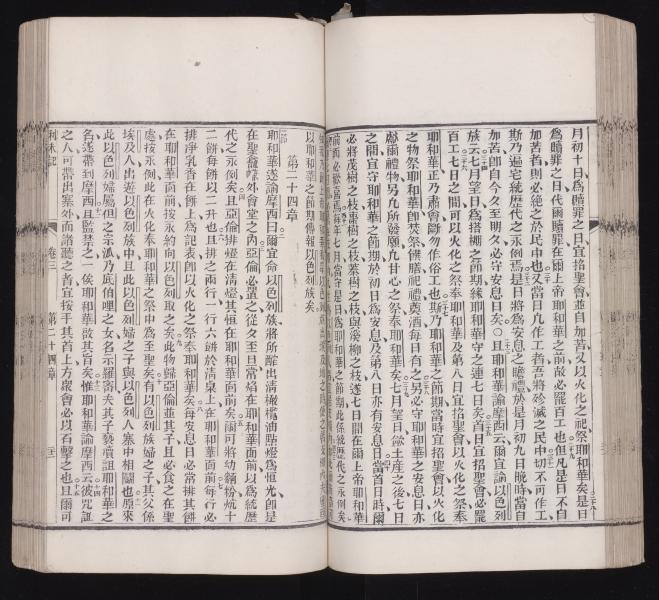 月初十日爲贖罪之日宜招聖會並自加苦又以火化之祀祭耶和華矣是日
爲贖罪之日代爾贖罪在爾上帝耶和華之前故必罷百工也但凡是日不自
加苦者則必絕之於民中也又當日凡作工者吾將殄滅之民中切不可作工
斯乃遍宅統歷代之永例焉是日將爲安息之瞻禮於是月初九日晚時當自
加苦卽自今久至明久必守安息日矣○且耶和華諭摩西云爾宜諭以色列
族云七月望日爲搭棚之節期緣耶和華守之連七日矣首日宜招聖會必罷
百工七日之間可以火化之祭奉耶和華及第八日宜招聖會以火化之祭奉
耶和華正乃肅會斷勿作俗工也斯乃耶和華之節期當時宜招聖會以火化
之物祭耶和華卽焚祭饌膳祀禮奠酒每日有之另必守耶和華之安息日亦
爾禮物另凡所發願凡甘心之祭奉耶和華矣七月望日斂土產之後七日
之間宜守耶和華之節期於初日爲安息及第八日亦有安息日當首日時爾
必將茂樹之枝棗樹之枝叢樹之枝與溪柳之枝遂七日間在爾上帝耶和華
年七月當守是日爲耶和華之節期此係統歷代之永例矣
以耶和華之節期傳報以色列族矣
第二十四章
耶和華遂諭摩西曰爾宜命以色列族將所醡出淸橄欖油點燈爲恆光卽是
在聖會帳外會堂之內亞倫必置之從夕至旦當焰在耶和華面前以爲統歷
代之永例矣且亞倫排燈在淸燈其恒在耶和華面前矣爾可將幼麵粉炕十
二餅每餅以二升也且排之兩行一行六餅於淸桌上在耶和華面前每行必
排淨乳香在餅上爲記表卽以火化之祭奉耶和華矣每安息日必常排其餅
在耶和華面前按永約向以色列取之矣此物歸亞倫並其子且必食之在聖
處按永例此在火化奉耶和華之祭中爲至聖矣有以色列族婦之子其父係
埃及人出遊以色列族中且此以色列婦之子與以色列人寨中相鬬也原來
此以色列婦屬但之宗派乃底伯哩之女名示羅蜜夫其子褻瀆詛耶和華之
名遂帶到摩西且監禁之一俟耶和華啟其旨矣惟耶和華諭摩西云彼咒詛
之人可帶出寨外而諸聽之者宜按手其首上方衆會必以石擊之也且爾可
利未記
卷三
第二十四章